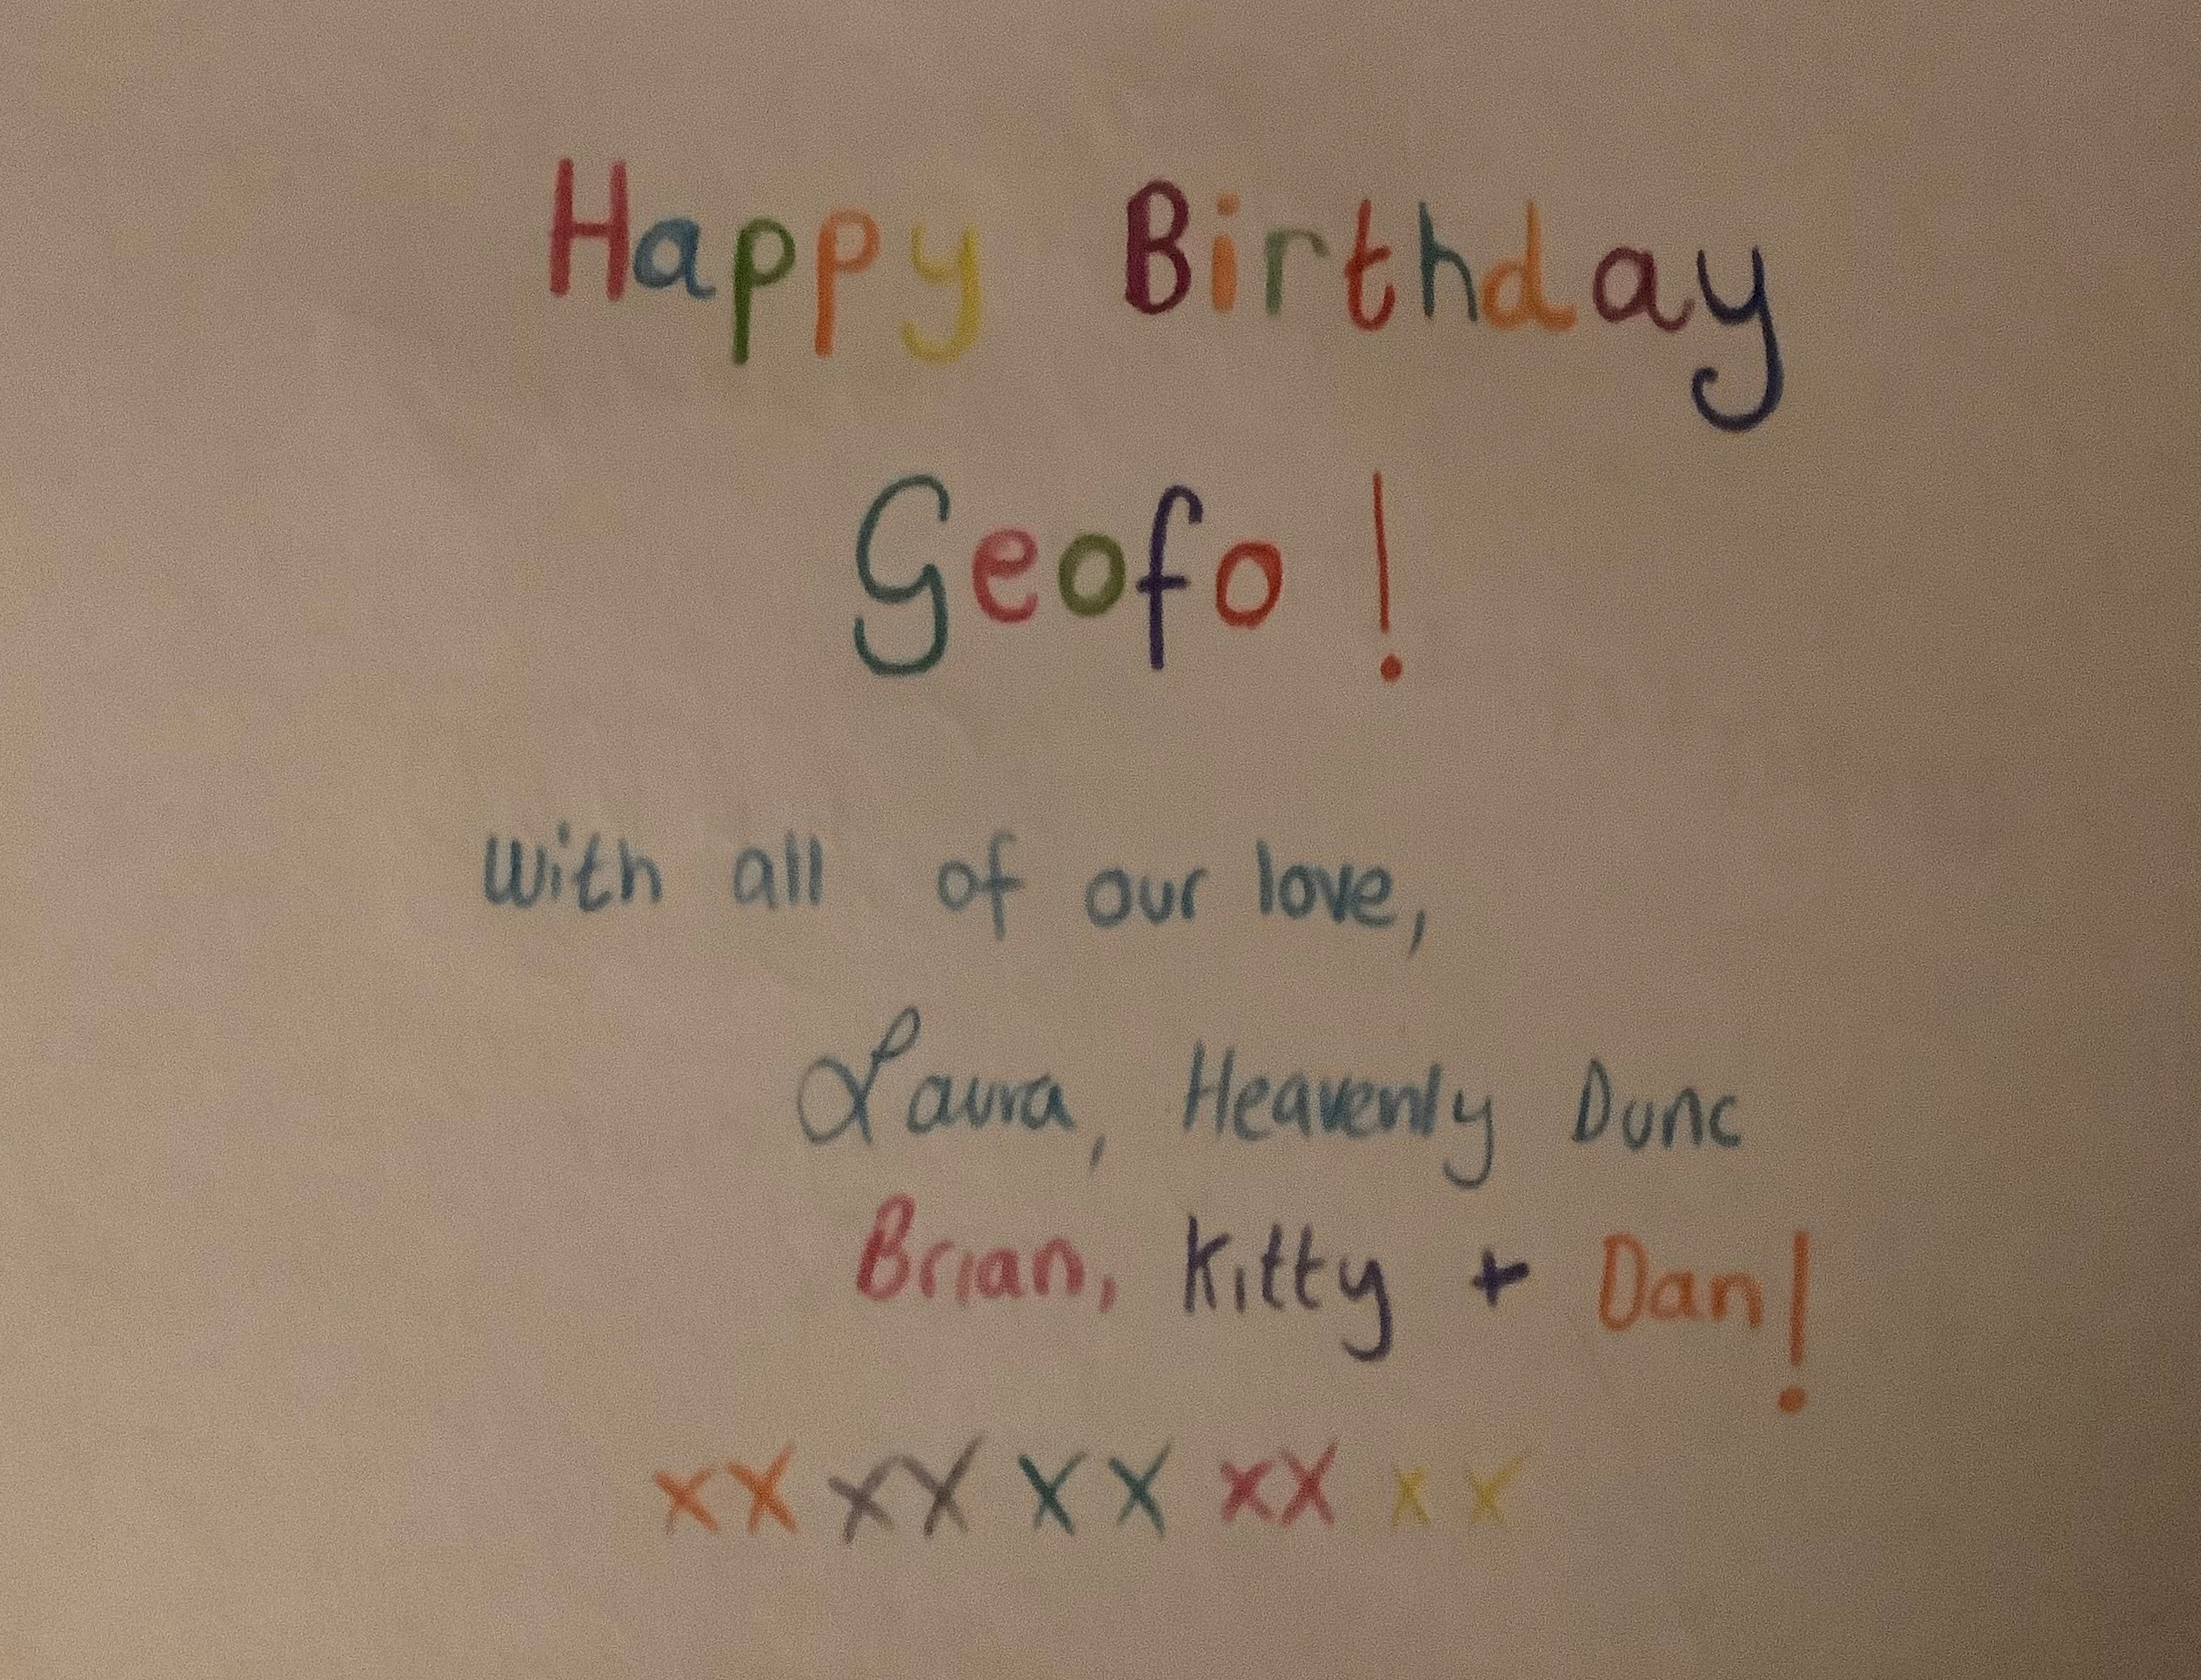 Happy Birthday
Geofo!
With all of our love,
Laura, Heavenly Dunc
Brian, Kitty + Dan!
xx xx xx xx xx